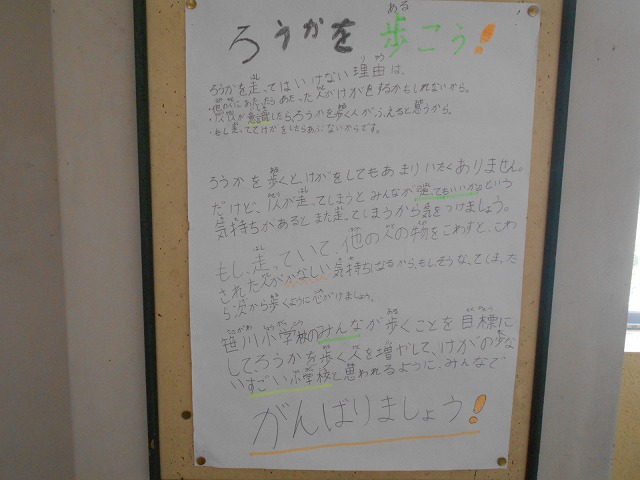 ろうかを歩こう!
ろうかを走ってはいけない理由は、
・他の人にあたったらあたった人がけがをするかもしれないから。
・次我が意識したら、ろうかを歩く人がふえると思うから。
・もし走っててけがをしたらあぶないからです。
ろうかを歩くと、けがをしてもあまりいたくありません。
だけど、1人が走ってしまうとみんなが走ってもいいかなという
気持ちがあるとまた走ってしまうから気をつけましょう。
もし、走っていて、他の人の物をこわすと、こわ
された人がかなしい気持ちになるから、もしそうなってしまった
ら次から歩くように心がけましょう。
笹川小学校のみんなが歩くことを目標に
してろうかを歩く人を増やして、けがの な
いすごい小学校と思われるように、みんなで
がんばりましょう!